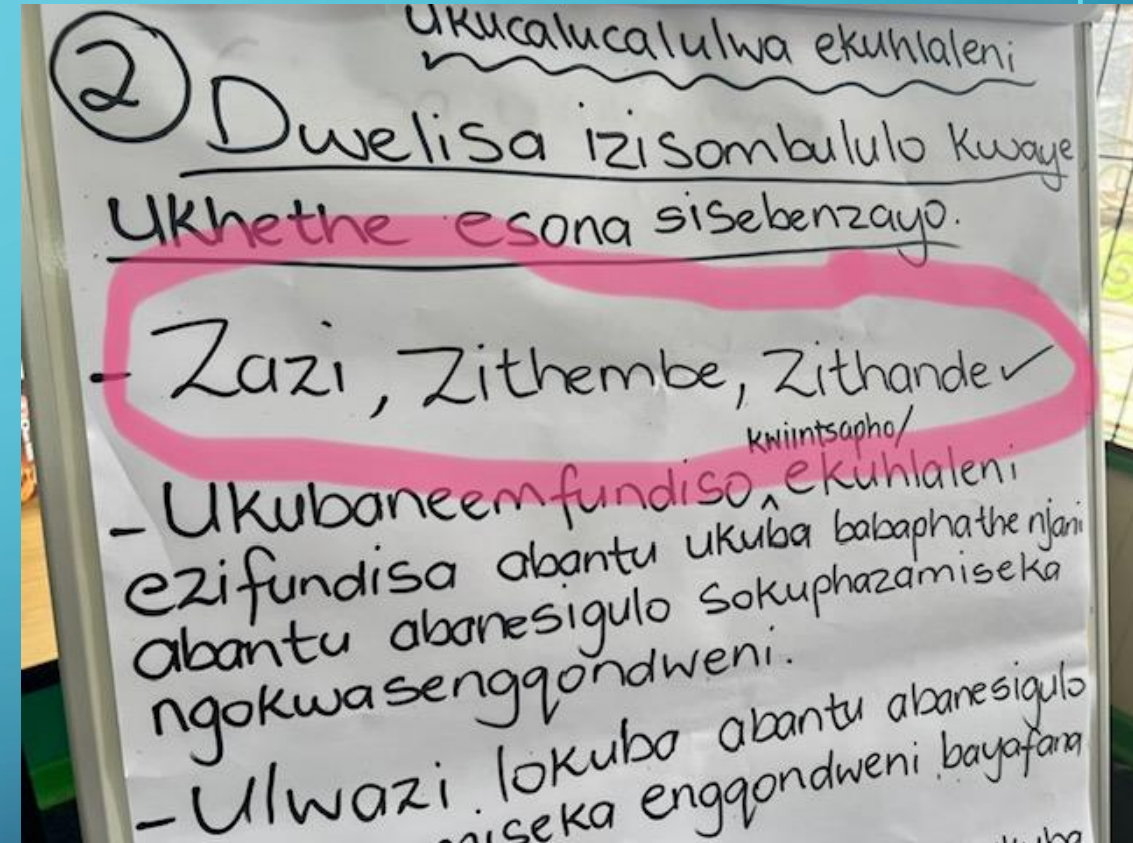 ukucalucalulwa ekuhlaleni
2 Dwelisa izisombululo kwaye
ukhethe esona sisebenzayo.
- Zazi, Zithembe, Zithande ✓
kwiintsapho/
- Ukubaneemfundiso ^ ekuhlaleni
ezifundisa abantu ukuba babaphathe njani
abantu abanesigulo sokuphazamiseka
ngokwasengqondweni.
- Ulwazi lokuba abantu abanesigulo
miseka engqondweni bayafana